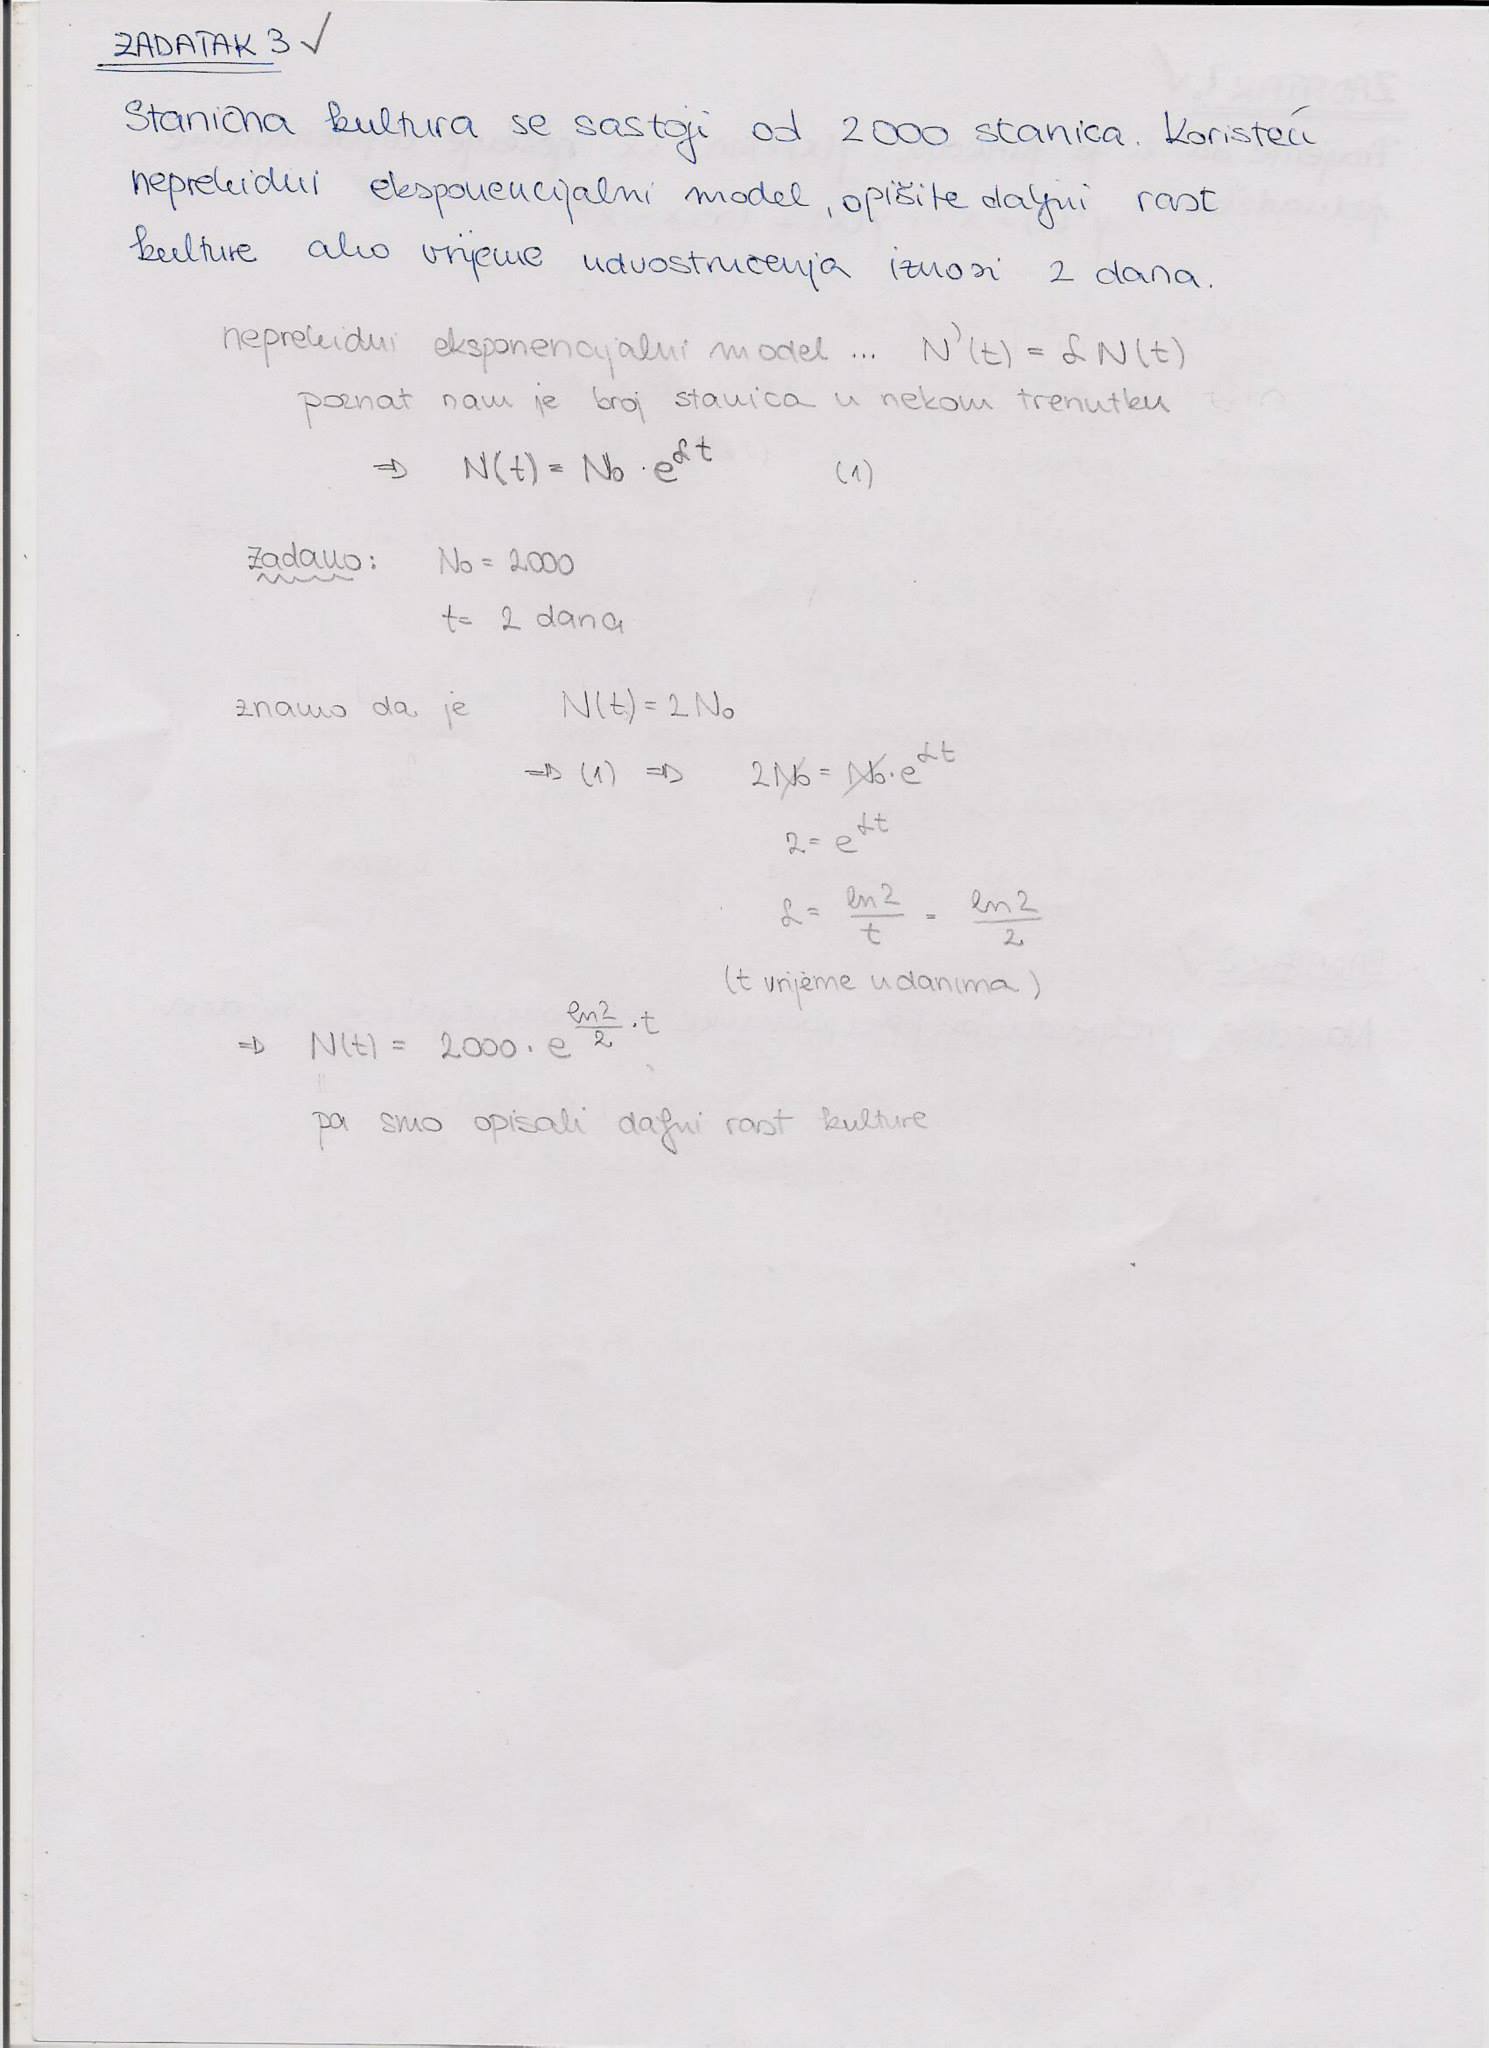 ZADATAK 3 ✓
Stanična kultura se sastoji od 2000 stanica. Koristeći
neprekidni eksponencijalni model, opišite daljni rast
kulture ako vrijeme udvostručenja iznosi 2 dana.
neprekidni eksponencijalni model ... N'(t) = α N(t)
poznat nam je broj stanica u nekom trenutku
⇒ N(t) = N₀ · e^{αt} (1)
Zadano: N₀ = 2000
t = 2 dana
znamo da je N(t) = 2N₀
⇒ (1) ⇒ 2N₀ = N₀ · e^{αt}
2 = e^{αt}
α = ln2/t = ln2/2
(t vrijeme u danima)
⇒ N(t) = 2000 · e^{ln2/2 · t}
pa smo opisali daljni rast kulture